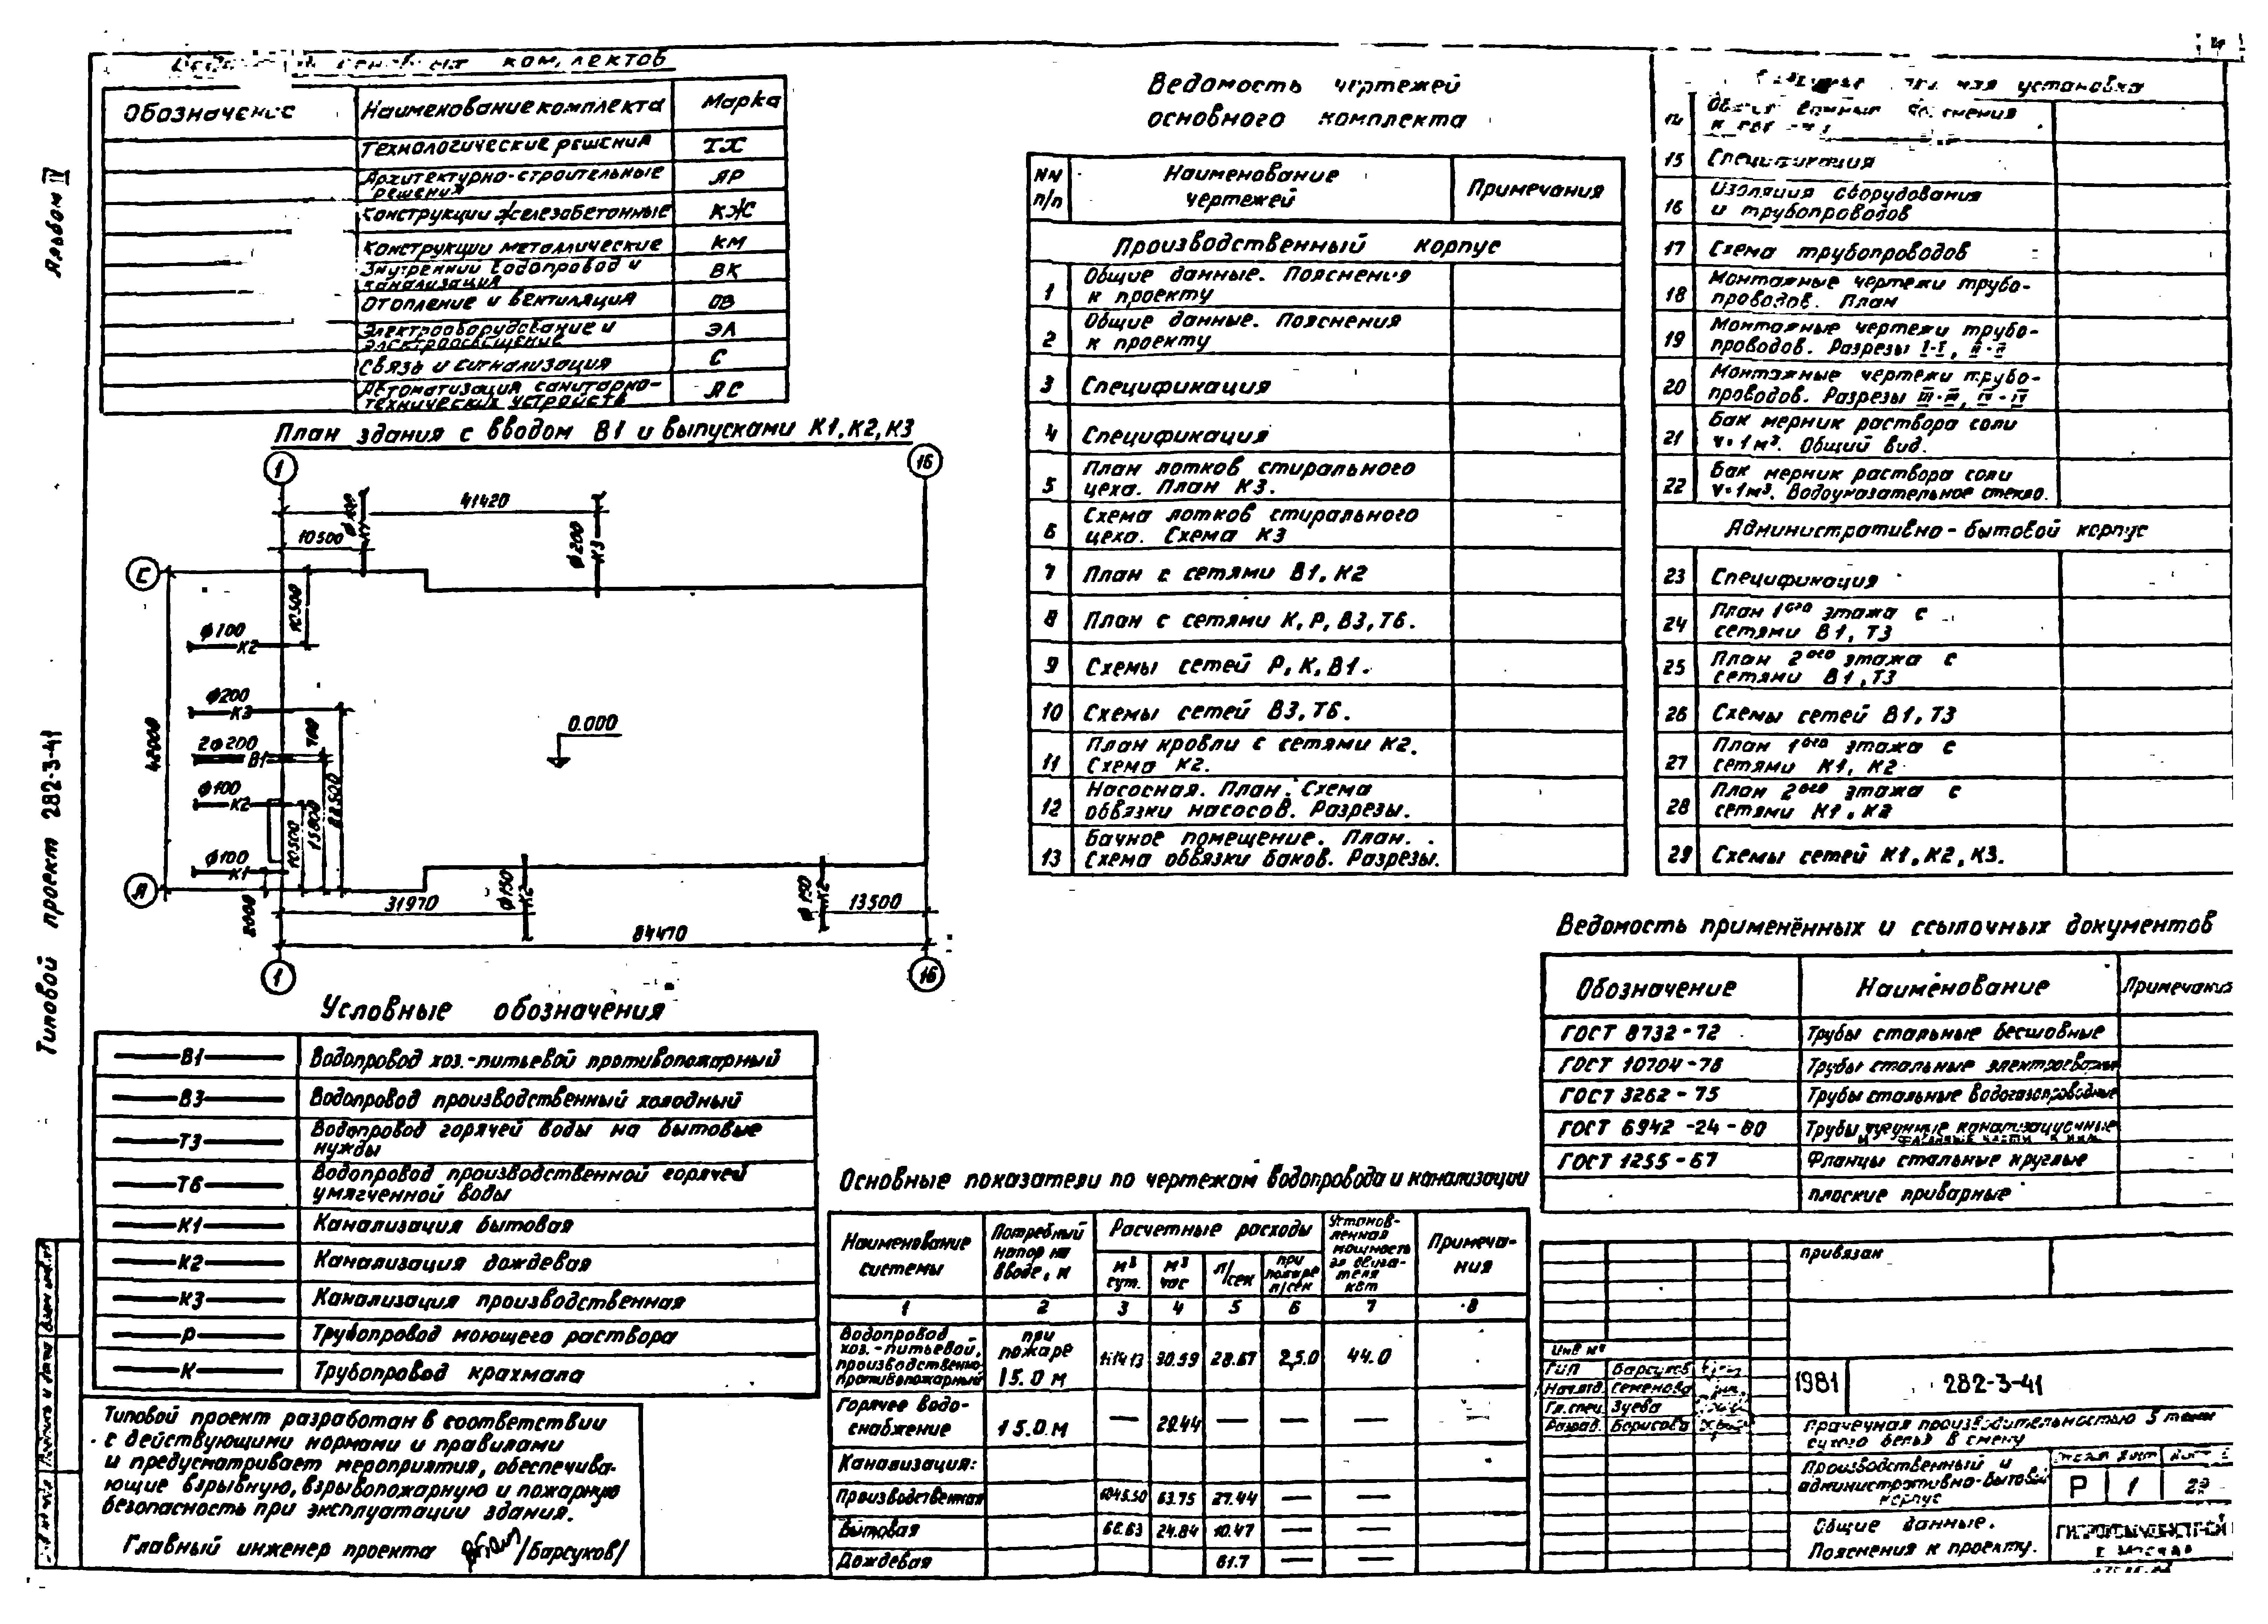 Альбом IV
Типовой проект 282-3-41
комплектов
Обозначение
Наименование комплекта
Марка
Технологические решения
ТХ
Архитектурно-строительные
решения
АР
Конструкции железобетонные
КЖ
Конструкции металлические
КМ
Внутренний водопровод и
канализация
ВК
Отопление и вентиляция
ОВ
Электрооборудование и
электроосвещение
ЭЛ
Связь и сигнализация
С
Автоматизация санитарно-
технических устройств
АС
План здания с вводом В1 и выпусками К1, К2, К3
1
16
41420
10500
К1
ф200
К3
С
А
10500
ф100
К2
ф200
К3
2ф200
В1
700
ф100
К2
ф100
К1
42000
0.000
10500
15800
2000
31970
ф150
К2
ф150
К2
13500
84470
1
16
Условные обозначения
В1
Водопровод хоз.-питьевой противопожарный
В3
Водопровод производственный холодный
Т3
Водопровод горячей воды на бытовые
нужды
Т6
Водопровод производственной горячей
умягченной воды
К1
Канализация бытовая
К2
Канализация дождевая
К3
Канализация производственная
Р
Трубопровод моющего раствора
К
Трубопровод крахмала
Типовой проект разработан в соответствии
с действующими нормами и правилами
и предусматривает мероприятия, обеспечива-
ющие взрывную, взрывопожарную и пожарную
безопасность при эксплуатации здания.
Главный инженер проекта /Барсуков/
Ведомость чертежей
основного комплекта
NN
п/п
Наименование
чертежей
Примечания
Производственный корпус
1
Общие данные. Пояснения
к проекту
2
Общие данные. Пояснения
к проекту
3
Спецификация
4
Спецификация
5
План лотков стирального
цеха. План К3.
6
Схема лотков стирального
цеха. Схема К3
7
План с сетями В1, К2
8
План с сетями К, Р, В3, Т6.
9
Схемы сетей Р, К, В1.
10
Схемы сетей В3, Т6.
11
План кровли с сетями К2.
Схема К2.
12
Насосная. План. Схема
обвязки насосов. Разрезы.
13
Бачное помещение. План.
Схема обвязки баков. Разрезы.
установка
15
Спецификация
16
Изоляция оборудования
и трубопроводов
17
Схема трубопроводов
18
Монтажные чертежи трубо-
проводов. План
19
Монтажные чертежи трубо-
проводов. Разрезы I-I, II-II
20
Монтажные чертежи трубо-
проводов. Разрезы III-III, IV-IV
21
Бак мерник раствора соли
V=1м³. Общий вид.
22
Бак мерник раствора соли
V=1м³. Водоуказательное стекло.
Административно-бытовой корпус
23
Спецификация
24
План 1ого этажа с
сетями В1, Т3
25
План 2ого этажа с
сетями В1, Т3
26
Схемы сетей В1, Т3
27
План 1ого этажа с
сетями К1, К2
28
План 2ого этажа с
сетями К1, К2
29
Схемы сетей К1, К2, К3.
Ведомость применённых и ссылочных документов
Обозначение
Наименование
Примечания
ГОСТ 8732-72
Трубы стальные бесшовные
ГОСТ 10704-76
Трубы стальные электросварные
ГОСТ 3262-75
Трубы стальные водогазопроводные
ГОСТ 6942-24-80
Трубы чугунные канализационные
и фасонные части к ним
ГОСТ 1255-67
Фланцы стальные круглые
плоские приварные
Основные показатели по чертежам водопровода и канализации
Наименование
системы
Потребный
напор на
вводе, м
Расчетные расходы
м³
сут.
м³
час
л/сек
при
пожаре
л/сек
Установ-
ленная
мощность
эл. двига-
теля
квт
Примеча-
ния
1
2
3
4
5
6
7
8
Водопровод
хоз.-питьевой,
производственно-
противопожарный
при
пожаре
15.0 м
90.59
28.67
2,5.0
44.0
Горячее водо-
снабжение
15.0 м
—
29.44
—
—
—
Канализация:
Производственная
63.75
27.44
—
—
Бытовая
66.63
24.84
10.47
—
—
Дождевая
61.7
—
—
привязан
Инв №
ГИП
Барсуков
Нач.отд.
Семенова
Гл.спец.
Зуева
Разраб.
Борисова
1981
282-3-41
Прачечная производительностью 5 тонн
сухого белья в смену
Производственный и
административно-бытовой
корпус
Р
1
29
Общие данные.
Пояснения к проекту.